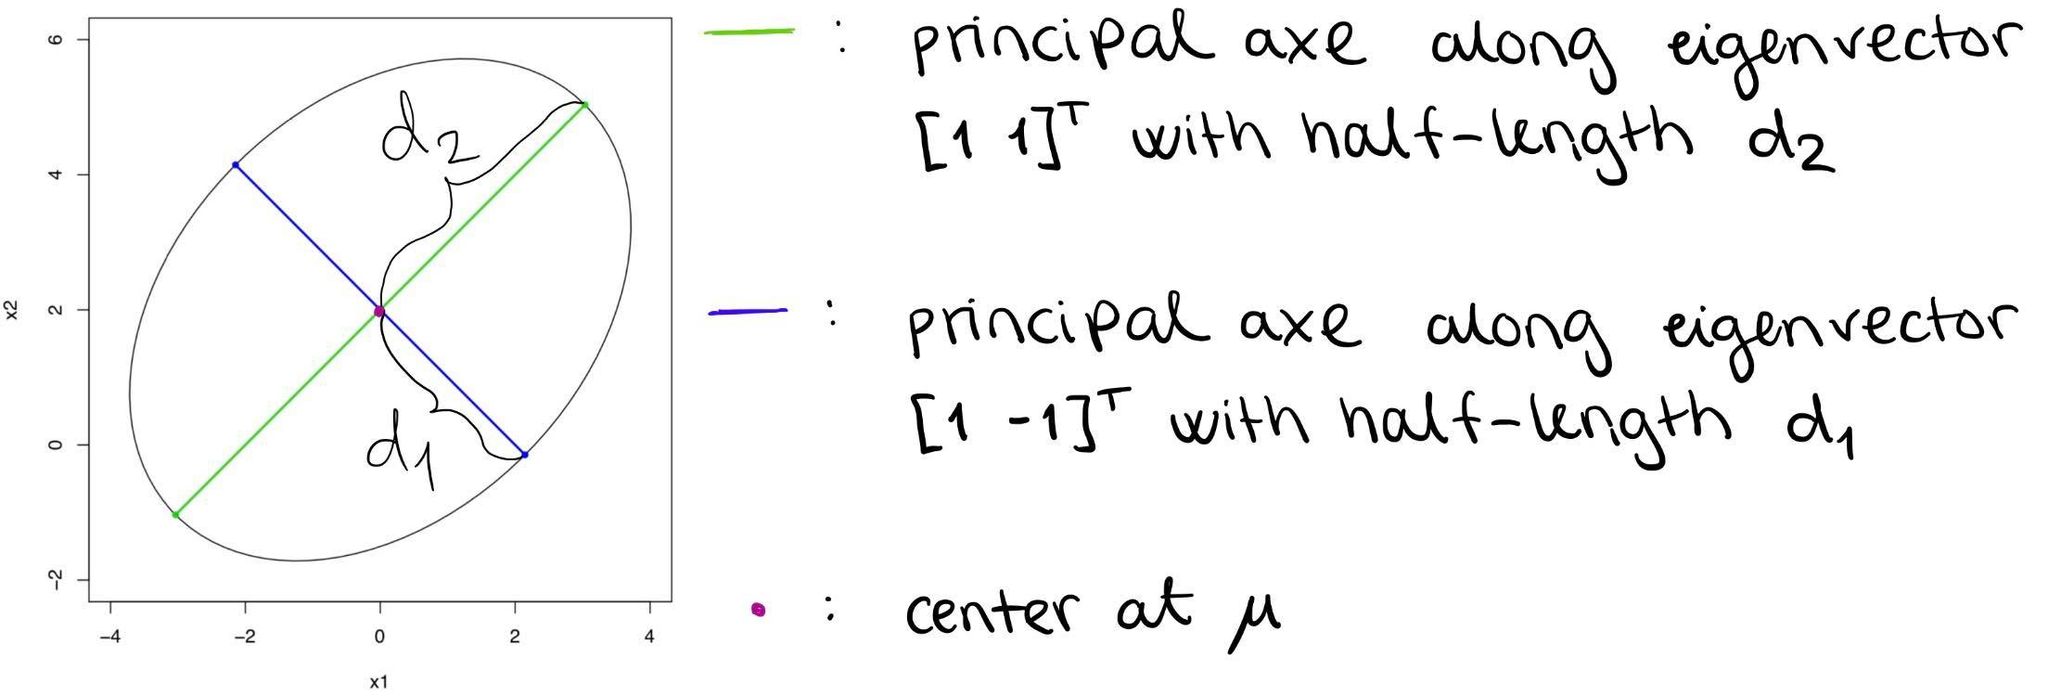 6
4
2
0
-2
x2
-4
-2
0
2
4
x1
d2
d1
: principal axe along eigenvector
[1 1]ᵀ with half-length d2
: principal axe along eigenvector
[1 -1]ᵀ with half-length d1
: center at μ